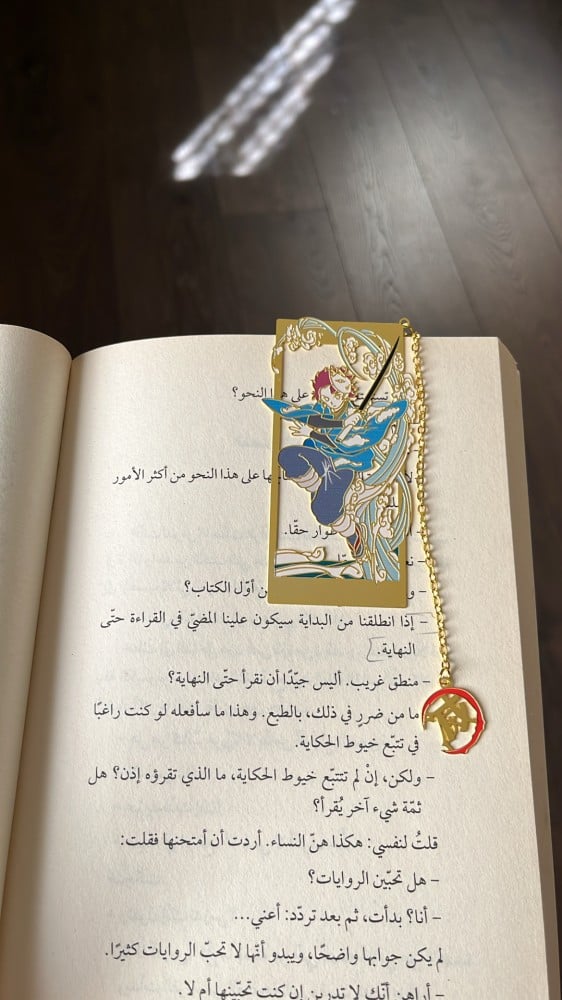 على هذا النحو؟
على هذا النحو من أكثر الأمور
حقّا.
أوّل الكتاب؟
– إذا انطلقنا من البداية سيكون علينا المضيّ في القراءة حتّى
النهاية.
– منطق غريب. أليس جيّدًا أن نقرأ حتّى النهاية؟
ما من ضررٍ في ذلك، بالطبع. وهذا ما سأفعله لو كنت راغبًا
في تتبّع خيوط الحكاية.
– ولكن، إنْ لم تتتبّع خيوط الحكاية، ما الذي تقرؤه إذن؟ هل
ثمّة شيء آخر يُقرأ؟
قلتُ لنفسي: هكذا هنّ النساء. أردت أن أمتحنها فقلت:
– هل تحبّين الروايات؟
– أنا؟ بدأت، ثم بعد تردّد: أعني...
لم يكن جوابها واضحًا، ويبدو أنّها لا تحبّ الروايات كثيرًا.
– أراهن أنّك لا تدرين إن كنت تحبّينها أم لا.